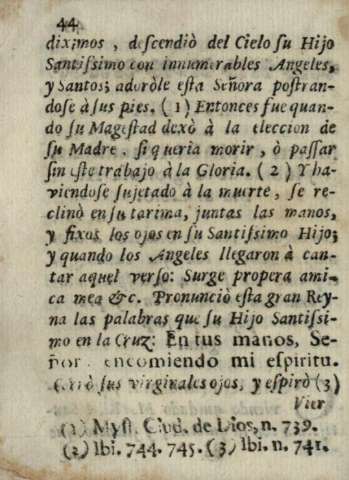 44
diximos , descendiò del Cielo su Hijo
Santissimo con innumerables Angeles,
y Santos; adoròle esta Señora postran-
dose à sus pies. (1) Entonces fue quan-
do su Magestad dexò à la eleccion de
su Madre, si queria morir, ò passar
sin este trabajo à la Gloria. (2) Y ha-
viendose sujetado à la muerte, se re-
clinò en su tarima, juntas las manos,
y fixos los ojos en su Santissimo Hijo;
y quando los Angeles llegaron à can-
tar aquel verso: Surge propera ami-
ca mea &c. Pronunciò esta gran Rey-
na las palabras que su Hijo Santissi-
mo en la Cruz: En tus manos, Se-
ñor, encomiendo mi espiritu.
Cerrò sus virginales ojos, y espirò (3)
Vier
(1) Myst. Ciud. de Dios, n. 739.
(2) Ibi. 744. 745. (3) Ibi. n. 741.